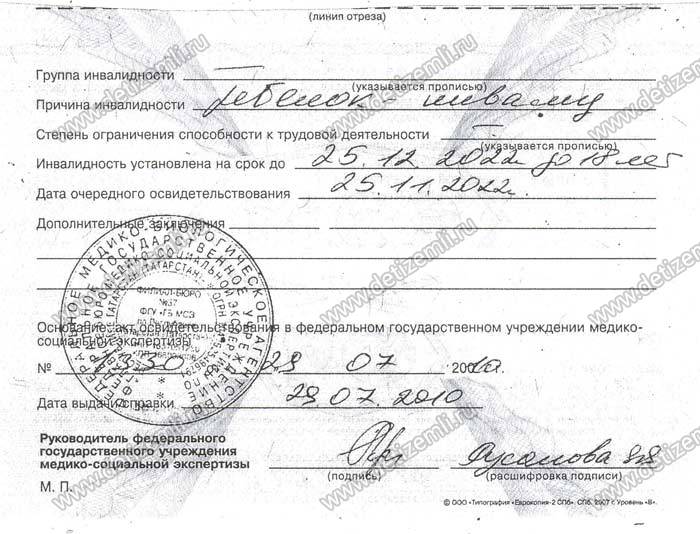 (линия отреза)
Группа инвалидности —
(указывается прописью)
Причина инвалидности ребенок - инвалид
Степень ограничения способности к трудовой деятельности —
(указывается прописью)
Инвалидность установлена на срок до 25.12.2022г. до 18 лет
Дата очередного освидетельствования 25.11.2022г.
Дополнительные заключения
Основание: акт освидетельствования в федеральном государственном учреждении медико-
социальной экспертизы
№ 1330 29 07 2010.
Дата выдачи справки 29.07.2010
Руководитель федерального
государственного учреждения
медико-социальной экспертизы
(подпись) (расшифровка подписи)
М. П.
© ООО «Типография «Еврокопия-2 СПб». СПб. 2007 г. Уровень «В».
ФЕДЕРАЛЬНОЕ МЕДИКО-БИОЛОГИЧЕСКОЕ АГЕНТСТВО
ФИЛИАЛ-БЮРО
№37
ФГУ «ГБ МСЭ
www.detizemli.ru